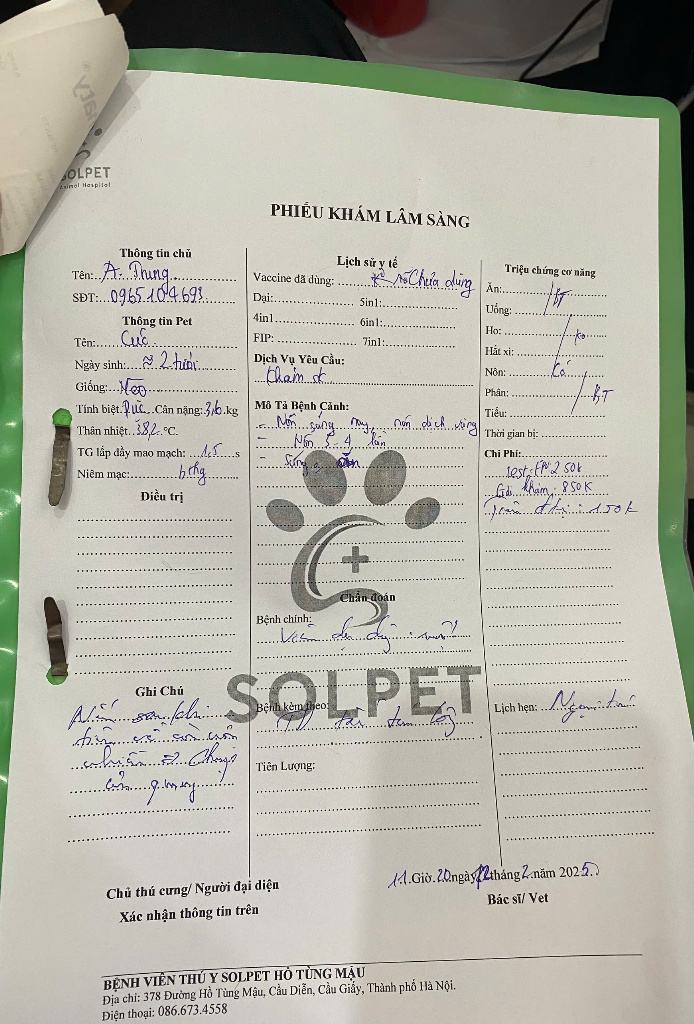 SOLPET
Animal Hospital
PHIẾU KHÁM LÂM SÀNG
Thông tin chủ
Tên: A. Thung
SĐT: 0965104693
Thông tin Pet
Tên: Cúc
Ngày sinh: ≈ 2 tuổi
Giống: Mèo
Tính biệt: Đực Cân nặng: 3,6 kg
Thân nhiệt: 38,2 °C.
TG lấp đầy mao mạch: 1,5 s
Niêm mạc: bthg
Điều trị
Ghi Chú
Nếu sau khi
nôn
Lịch sử y tế
Vaccine đã dùng: Chưa dùng
Dại: 5in1:
4in1 6in1:
FIP: 7in1:
Dịch Vụ Yêu Cầu:
Khám
Mô Tả Bệnh Cảnh:
- Nôn sáng nay, nôn dịch vàng
- Nôn 3-4 lần
-
Chẩn đoán
Bệnh chính:
Viêm dạ dày
SOLPET
Bệnh kèm theo:
Tiên Lượng:
Triệu chứng cơ năng
Ăn: BT
Uống:
Ho: ko
Hắt xì:
Nôn: Có
Phân: BT
Tiểu:
Thời gian bị:
Chi Phí:
250k
khám: 850K
: 150K
Lịch hẹn: Ngoại trú
Chủ thú cưng/ Người đại diện
Xác nhận thông tin trên
11 Giờ 20 ngày 12 tháng 2 năm 2025
Bác sĩ/ Vet
BỆNH VIÊN THÚ Y SOLPET HỒ TÙNG MẬU
Địa chỉ: 378 Đường Hồ Tùng Mậu, Cầu Diễn, Cầu Giấy, Thành phố Hà Nội.
Điện thoại: 086.673.4558